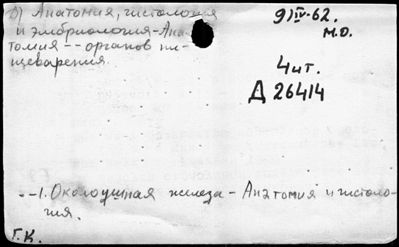 б) Анатомия, гистология
и эмбриология - Ана-
томия -- органов пи-
щеварения.
9/IV-62.
М.О.
Чит.
Д 26414
--1. Околоушная железа - Анатомия и гистоло-
гия.
Г.К.